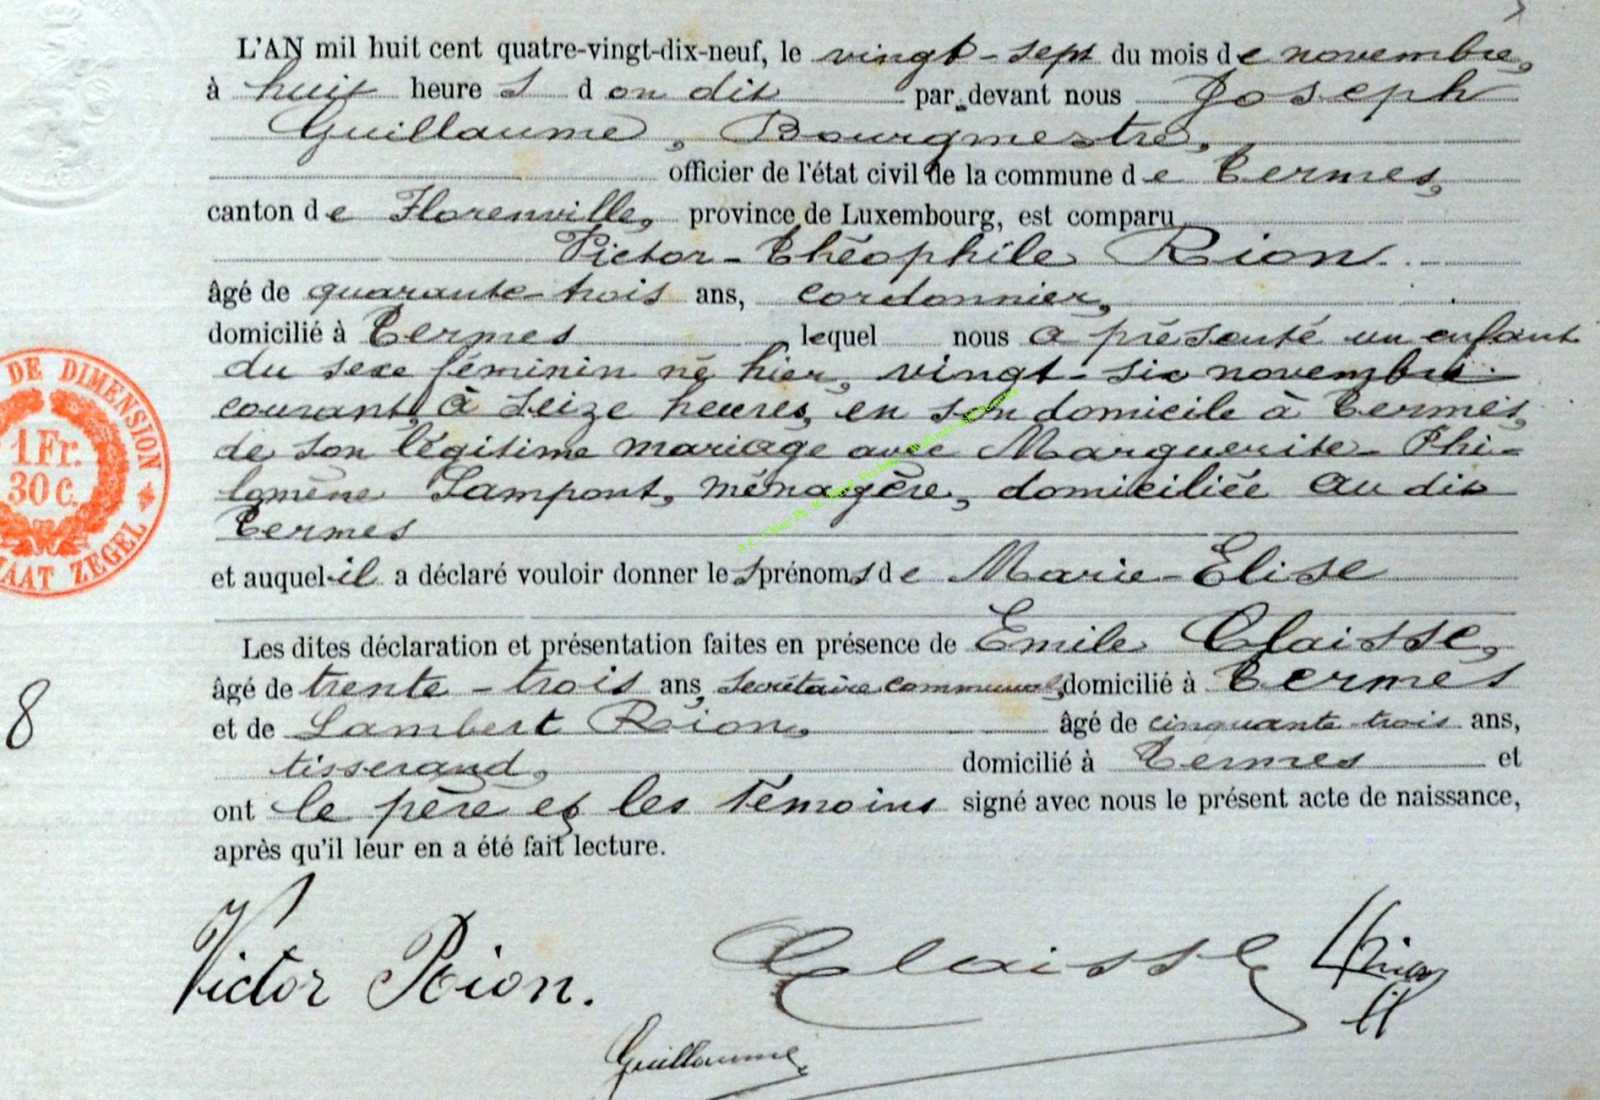 L'AN mil huit cent quatre-vingt-dix-neuf, le vingt-sept du mois de novembre,
à huit heures d on dit par-devant nous Joseph
Guillaume, Bourgmestre,
officier de l'état civil de la commune de Termes,
canton de Florenville, province de Luxembourg, est comparu
Victor-Théophile Rion
âgé de quarante-trois ans, cordonnier,
domicilié à Termes lequel nous a présenté un enfant
du sexe féminin né hier, vingt-six novembre
courant, à seize heures, en son domicile à Termes,
de son légitime mariage avec Marguerite-Phi-
lomène Lampont, ménagère, domiciliée au dit
Termes
et auquel il a déclaré vouloir donner les prénoms de Marie-Elise
Les dites déclaration et présentation faites en présence de Emile Claisse,
âgé de trente-trois ans, secrétaire communal, domicilié à Termes
et de Lambert Rion, âgé de cinquante-trois ans,
tisserand, domicilié à Termes et
ont le père et les témoins signé avec nous le présent acte de naissance,
après qu'il leur en a été fait lecture.
DE DIMENSION
1 Fr.
30 C.
ZEGEL
8
Victor Rion. Claisse
Guillaume